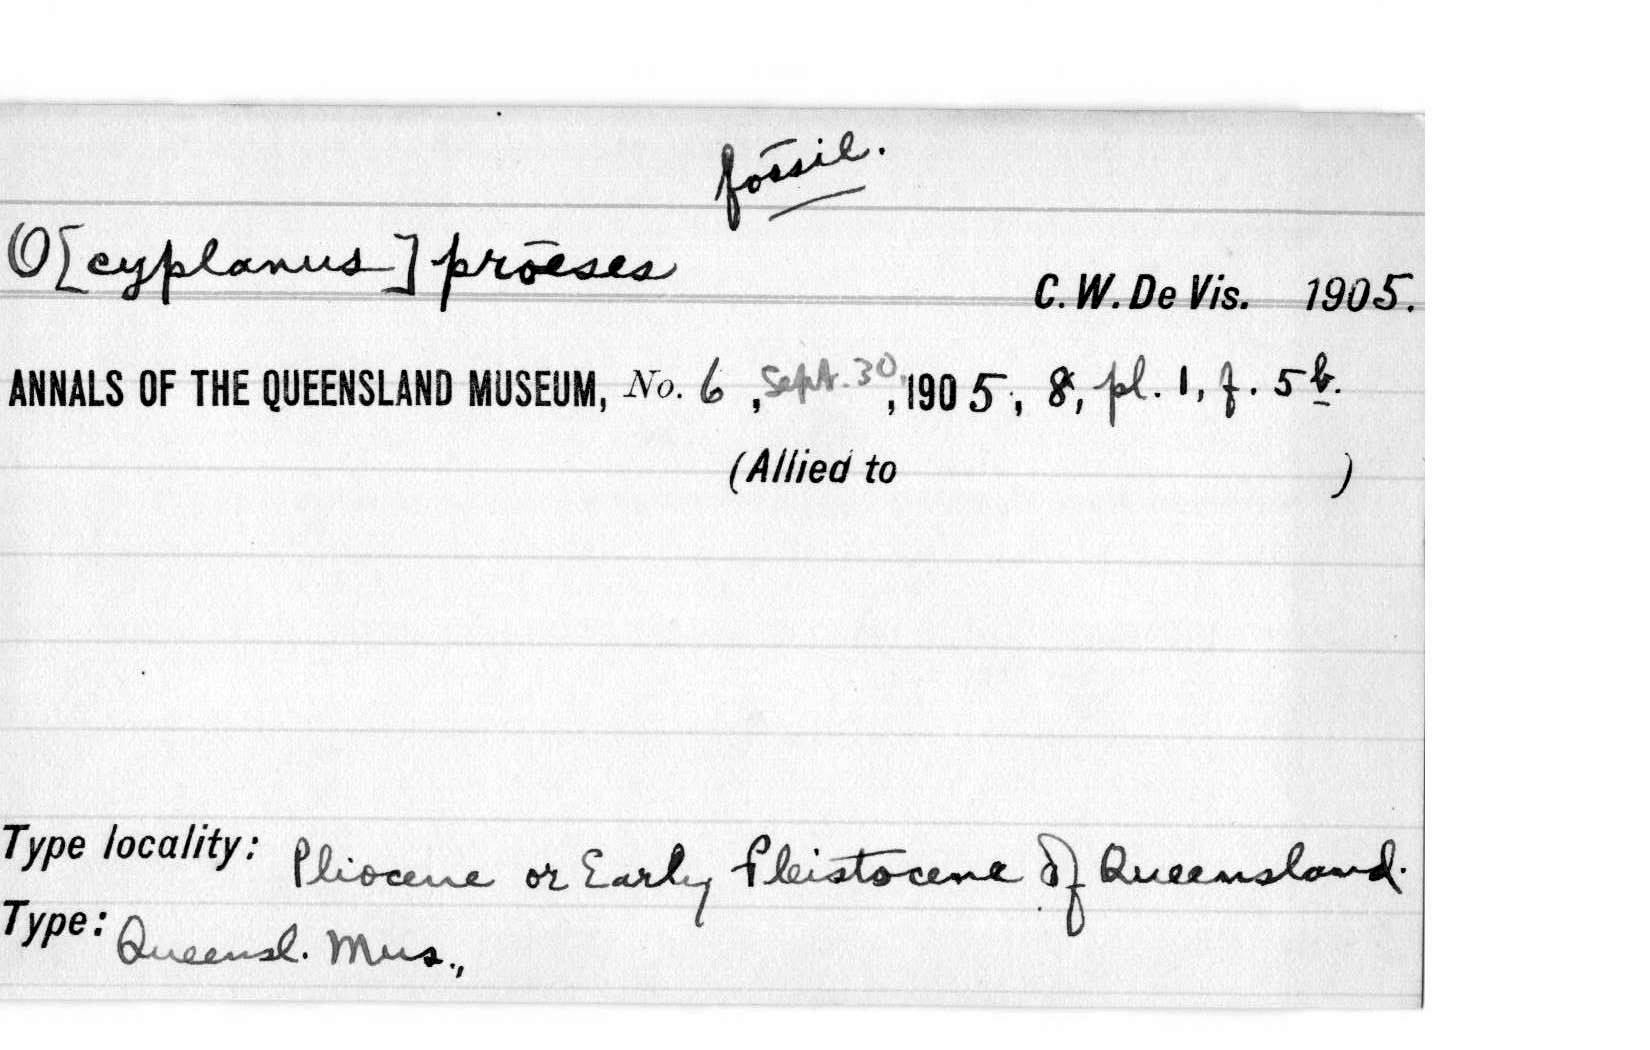 fossil.
O[cyplanus] prōeses
C. W. De Vis. 1905.
ANNALS OF THE QUEENSLAND MUSEUM, No. 6, Sept. 30, 1905, 8, pl. 1, f. 5b.
(Allied to )
Type locality: Pliocene or Early Pleistocene of Queensland.
Type: Queensl. Mus.,